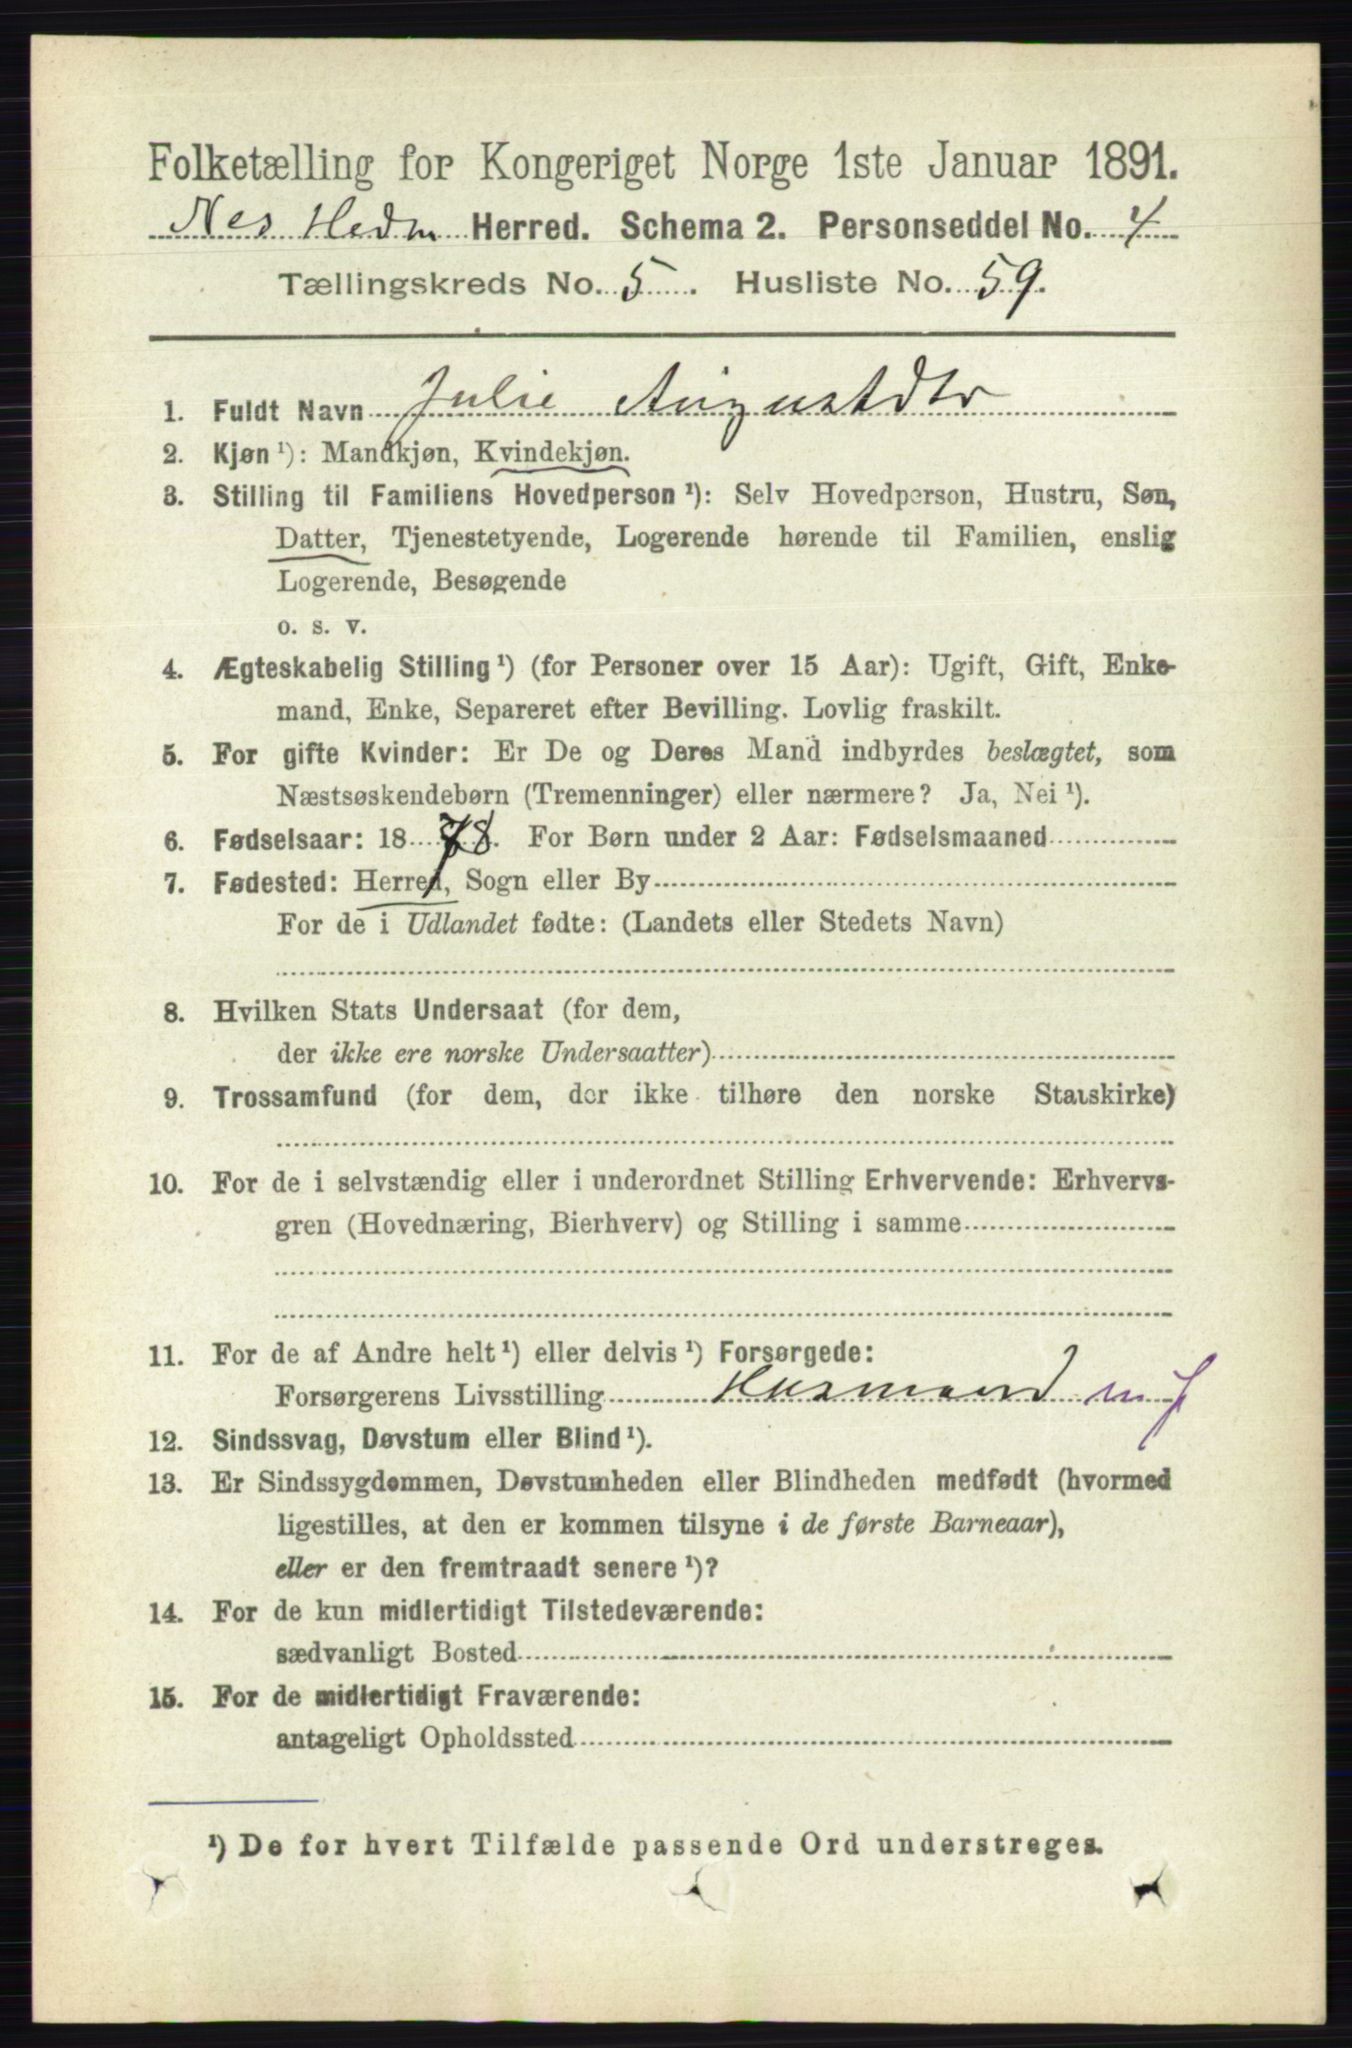 Folketælling for Kongeriget Norge 1ste Januar 1891.
Nes Hedm Herred. Schema 2. Personseddel No. 4
Tællingskreds No. 5. Husliste No. 59.
1. Fuldt Navn Julie Augustdtr
2. Kjøn ¹): Mandkjøn, Kvindekjøn.
3. Stilling til Familiens Hovedperson ¹): Selv Hovedperson, Hustru, Søn,
Datter, Tjenestetyende, Logerende hørende til Familien, enslig
Logerende, Besøgende
o. s. v.
4. Ægteskabelig Stilling ¹) (for Personer over 15 Aar): Ugift, Gift, Enke-
mand, Enke, Separeret efter Bevilling. Lovlig fraskilt.
5. For gifte Kvinder: Er De og Deres Mand indbyrdes beslægtet, som
Næstsøskendebørn (Tremenninger) eller nærmere? Ja, Nei ¹).
6. Fødselsaar: 18 78. For Børn under 2 Aar: Fødselsmaaned
7. Fødested: Herred, Sogn eller By
For de i Udlandet fødte: (Landets eller Stedets Navn)
8. Hvilken Stats Undersaat (for dem,
der ikke ere norske Undersaatter)
9. Trossamfund (for dem, der ikke tilhøre den norske Statskirke)
10. For de i selvstændig eller i underordnet Stilling Erhvervende: Erhvervs-
gren (Hovednæring, Bierhverv) og Stilling i samme
11. For de af Andre helt ¹) eller delvis ¹) Forsørgede:
Forsørgerens Livsstilling Husmand m J
12. Sindssvag, Døvstum eller Blind ¹).
13. Er Sindssygdommen, Døvstumheden eller Blindheden medfødt (hvormed
ligestilles, at den er kommen tilsyne i de første Barneaar),
eller er den fremtraadt senere ¹)?
14. For de kun midlertidigt Tilstedeværende:
sædvanligt Bosted
15. For de midlertidigt Fraværende:
antageligt Opholdssted
¹) De for hvert Tilfælde passende Ord understreges.